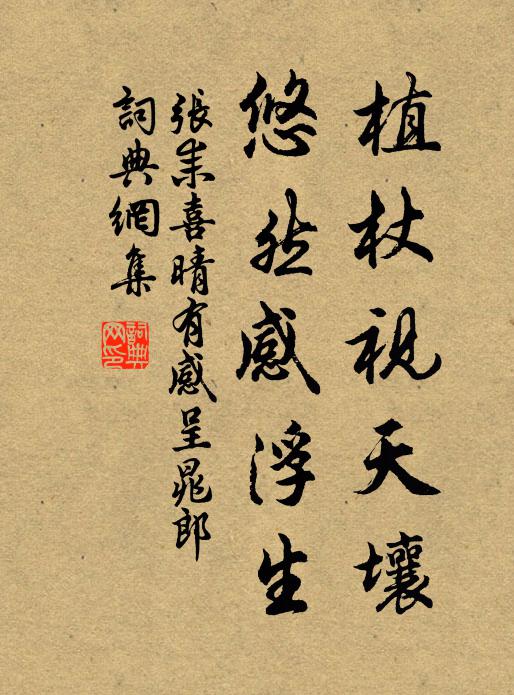 植杖視天壤
悠然感浮生
張耒喜晴有感呈晁郎
詞典網集
詞典網印